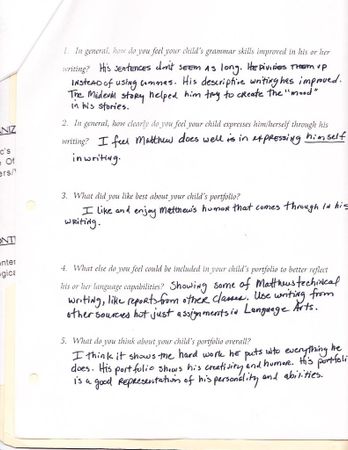 1. In general, how do you feel your child's grammar skills improved in his or her
writing? His sentences don't seem as long. He divides them up
instead of using commas. His descriptive writing has improved.
The Mideval story helped him try to create the "mood"
in his stories.
2. In general, how clearly do you feel your child expresses him/herself through his
writing? I feel Matthew does well is in expressing himself
in writing.
3. What did you like best about your child's portfolio?
I like and enjoy Matthew's humor that comes through in his
writing.
4. What else do you feel could be included in your child's portfolio to better reflect
his or her language capabilities? Showing some of Matthews technical
writing, like reports from other classes. Use writing from
other sources not just assignments in Language Arts.
5. What do you think about your child's portfolio overall?
I think it shows the hard work he puts into everything he
does. His portfolio shows his creativity and humor. His portfolio
is a good representation of his personality and abilities.